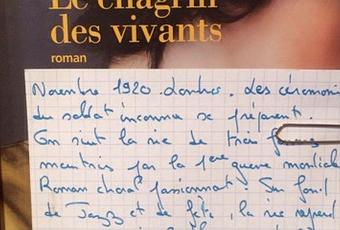 Le chagrin
des vivants
roman
Novembre 1920. Londres. Les cérémonie
du soldat inconnu se préparent.
On suit la vie de trois femmes
meurtries par la 1ère guerre mondiale
Roman choral passionnant ! Sur fond
de Jazz et de fête, la vie reprend